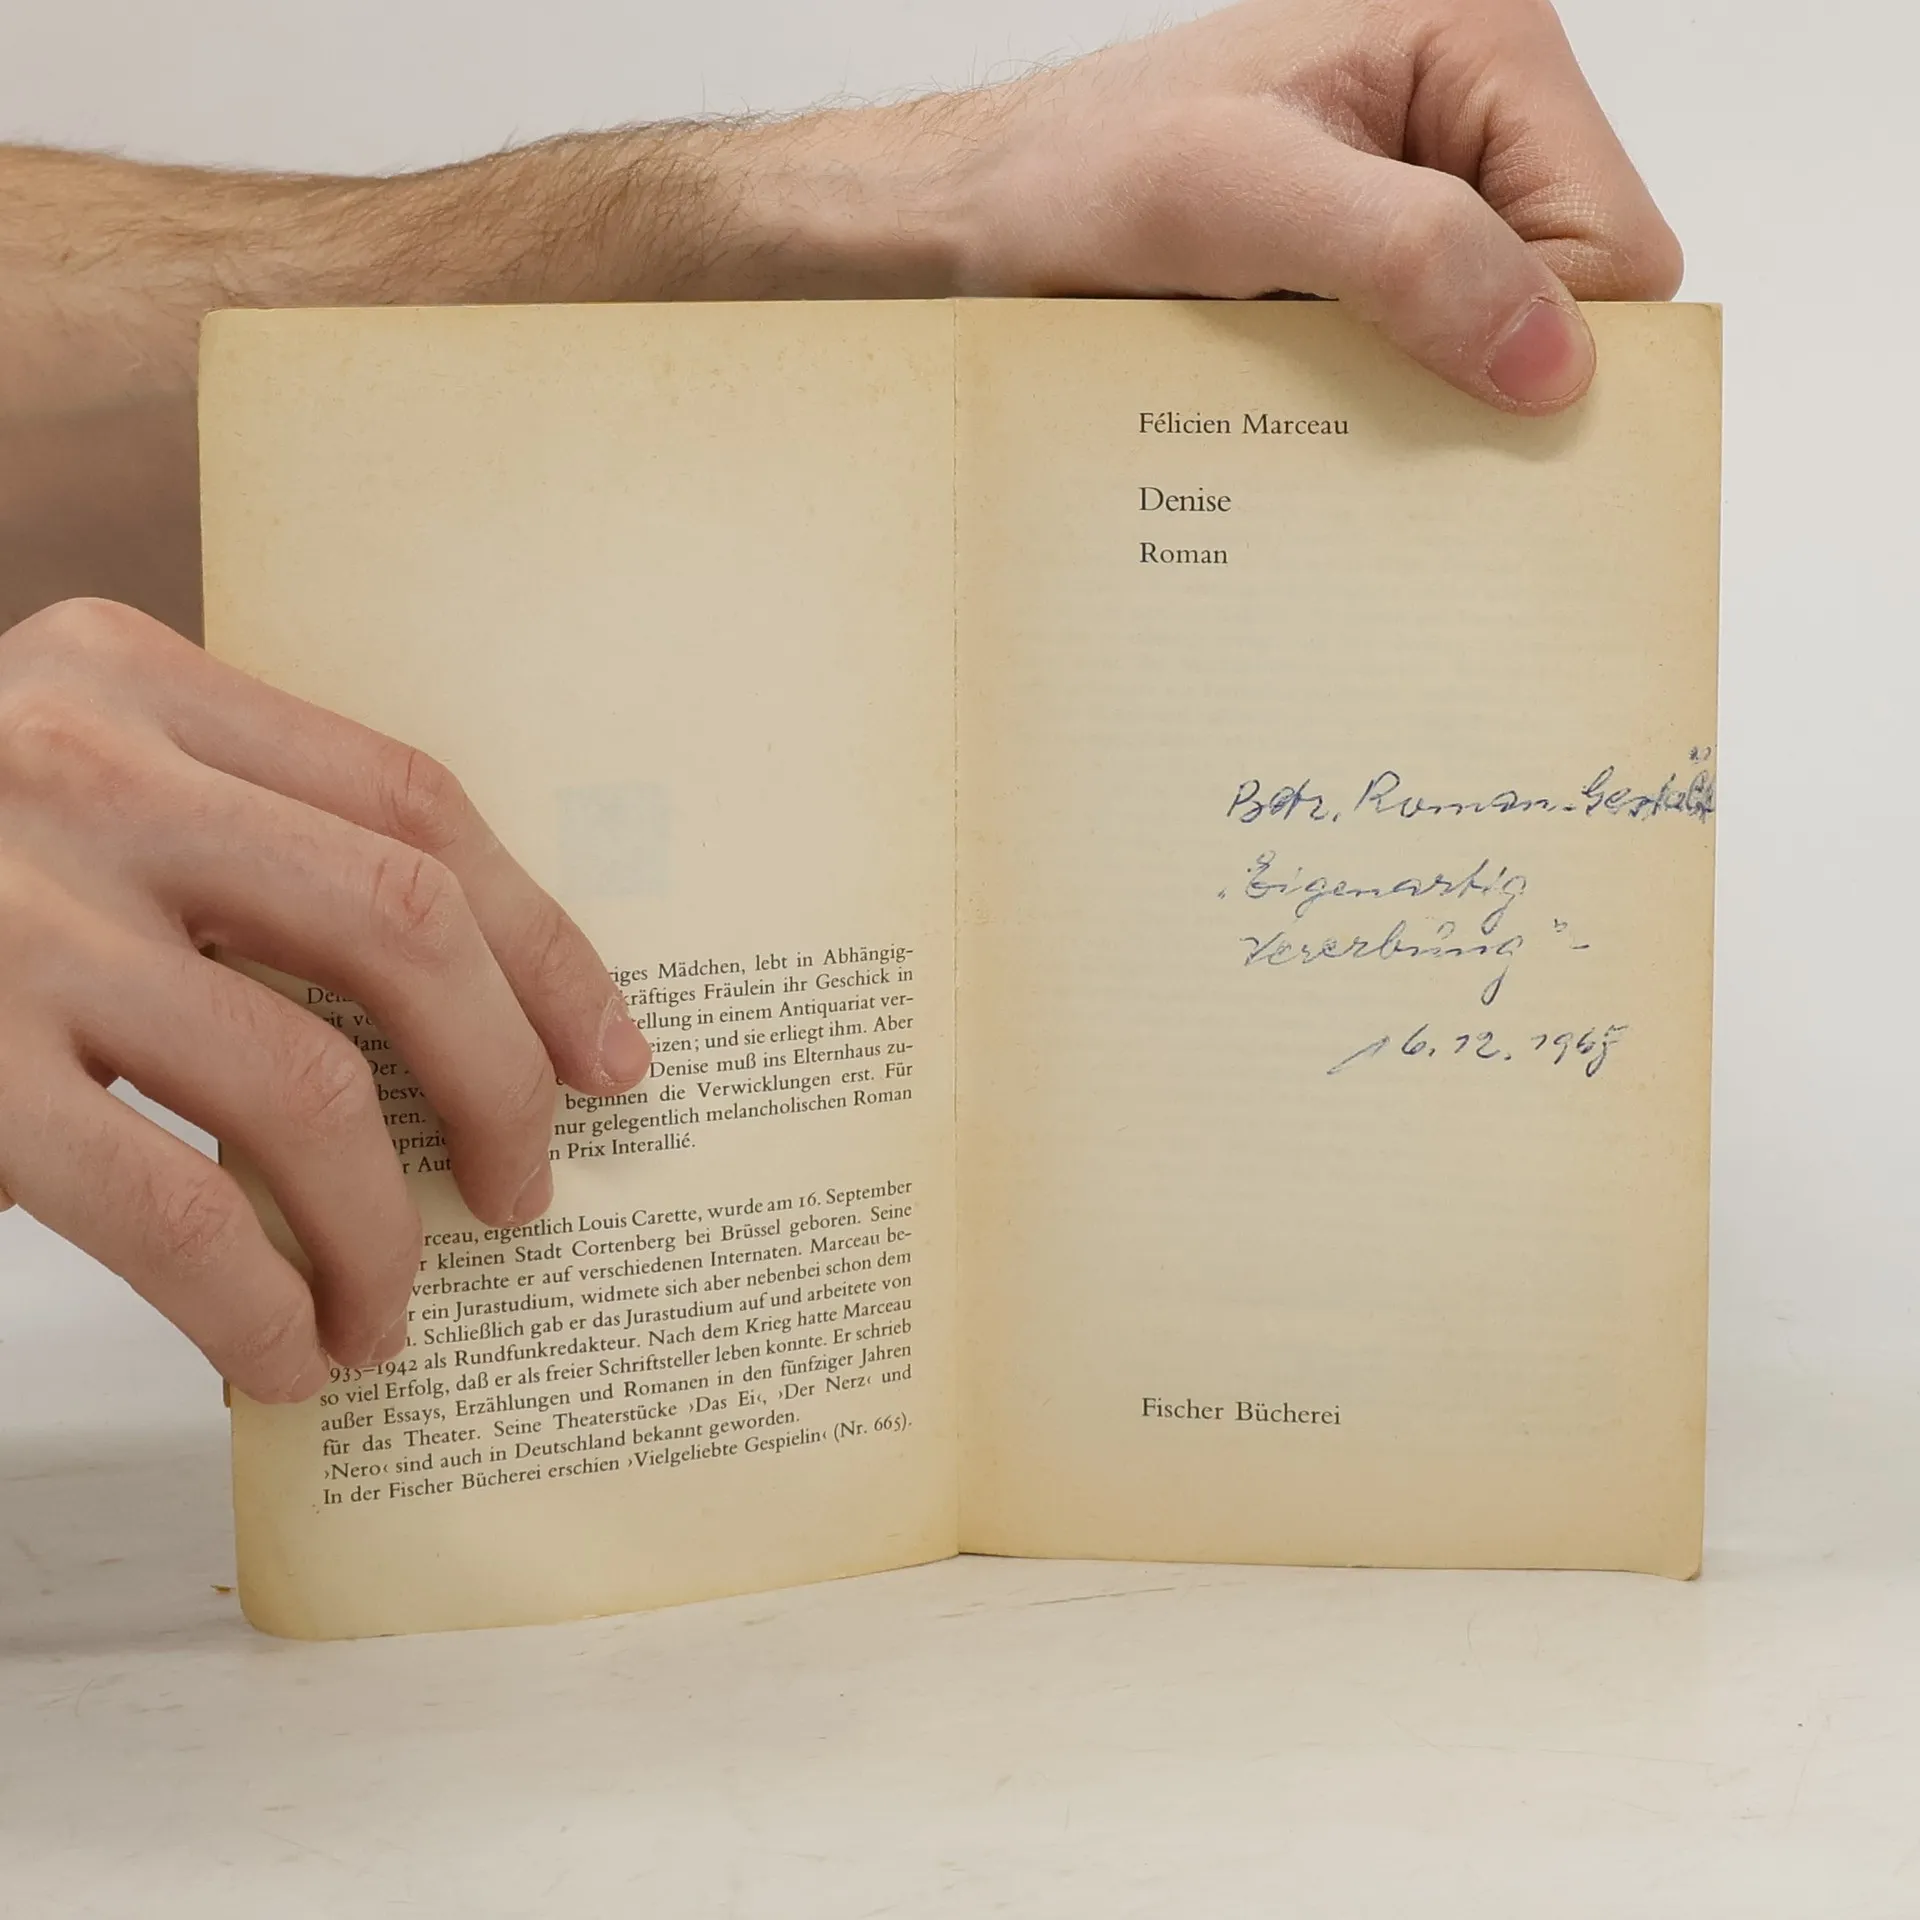 riges Mädchen, lebt in Abhängig-
kräftiges Fräulein ihr Geschick in
ellung in einem Antiquariat ver-
eizen; und sie erliegt ihm. Aber
Der Denise muß ins Elternhaus zu-
besv beginnen die Verwicklungen erst. Für
hren. nur gelegentlich melancholischen Roman
aprizi n Prix Interallié.
r Aut
rceau, eigentlich Louis Carette, wurde am 16. September
r kleinen Stadt Cortenberg bei Brüssel geboren. Seine
verbrachte er auf verschiedenen Internaten. Marceau be-
r ein Jurastudium, widmete sich aber nebenbei schon dem
n. Schließlich gab er das Jurastudium auf und arbeitete von
935–1942 als Rundfunkredakteur. Nach dem Krieg hatte Marceau
so viel Erfolg, daß er als freier Schriftsteller leben konnte. Er schrieb
außer Essays, Erzählungen und Romanen in den fünfziger Jahren
für das Theater. Seine Theaterstücke ›Das Ei‹, ›Der Nerz‹ und
›Nero‹ sind auch in Deutschland bekannt geworden.
In der Fischer Bücherei erschien ›Vielgeliebte Gespielin‹ (Nr. 665).
Félicien Marceau
Denise
Roman
Betr. Roman-
„Eigenartig
Vererbung"-
16.12.1965
Fischer Bücherei